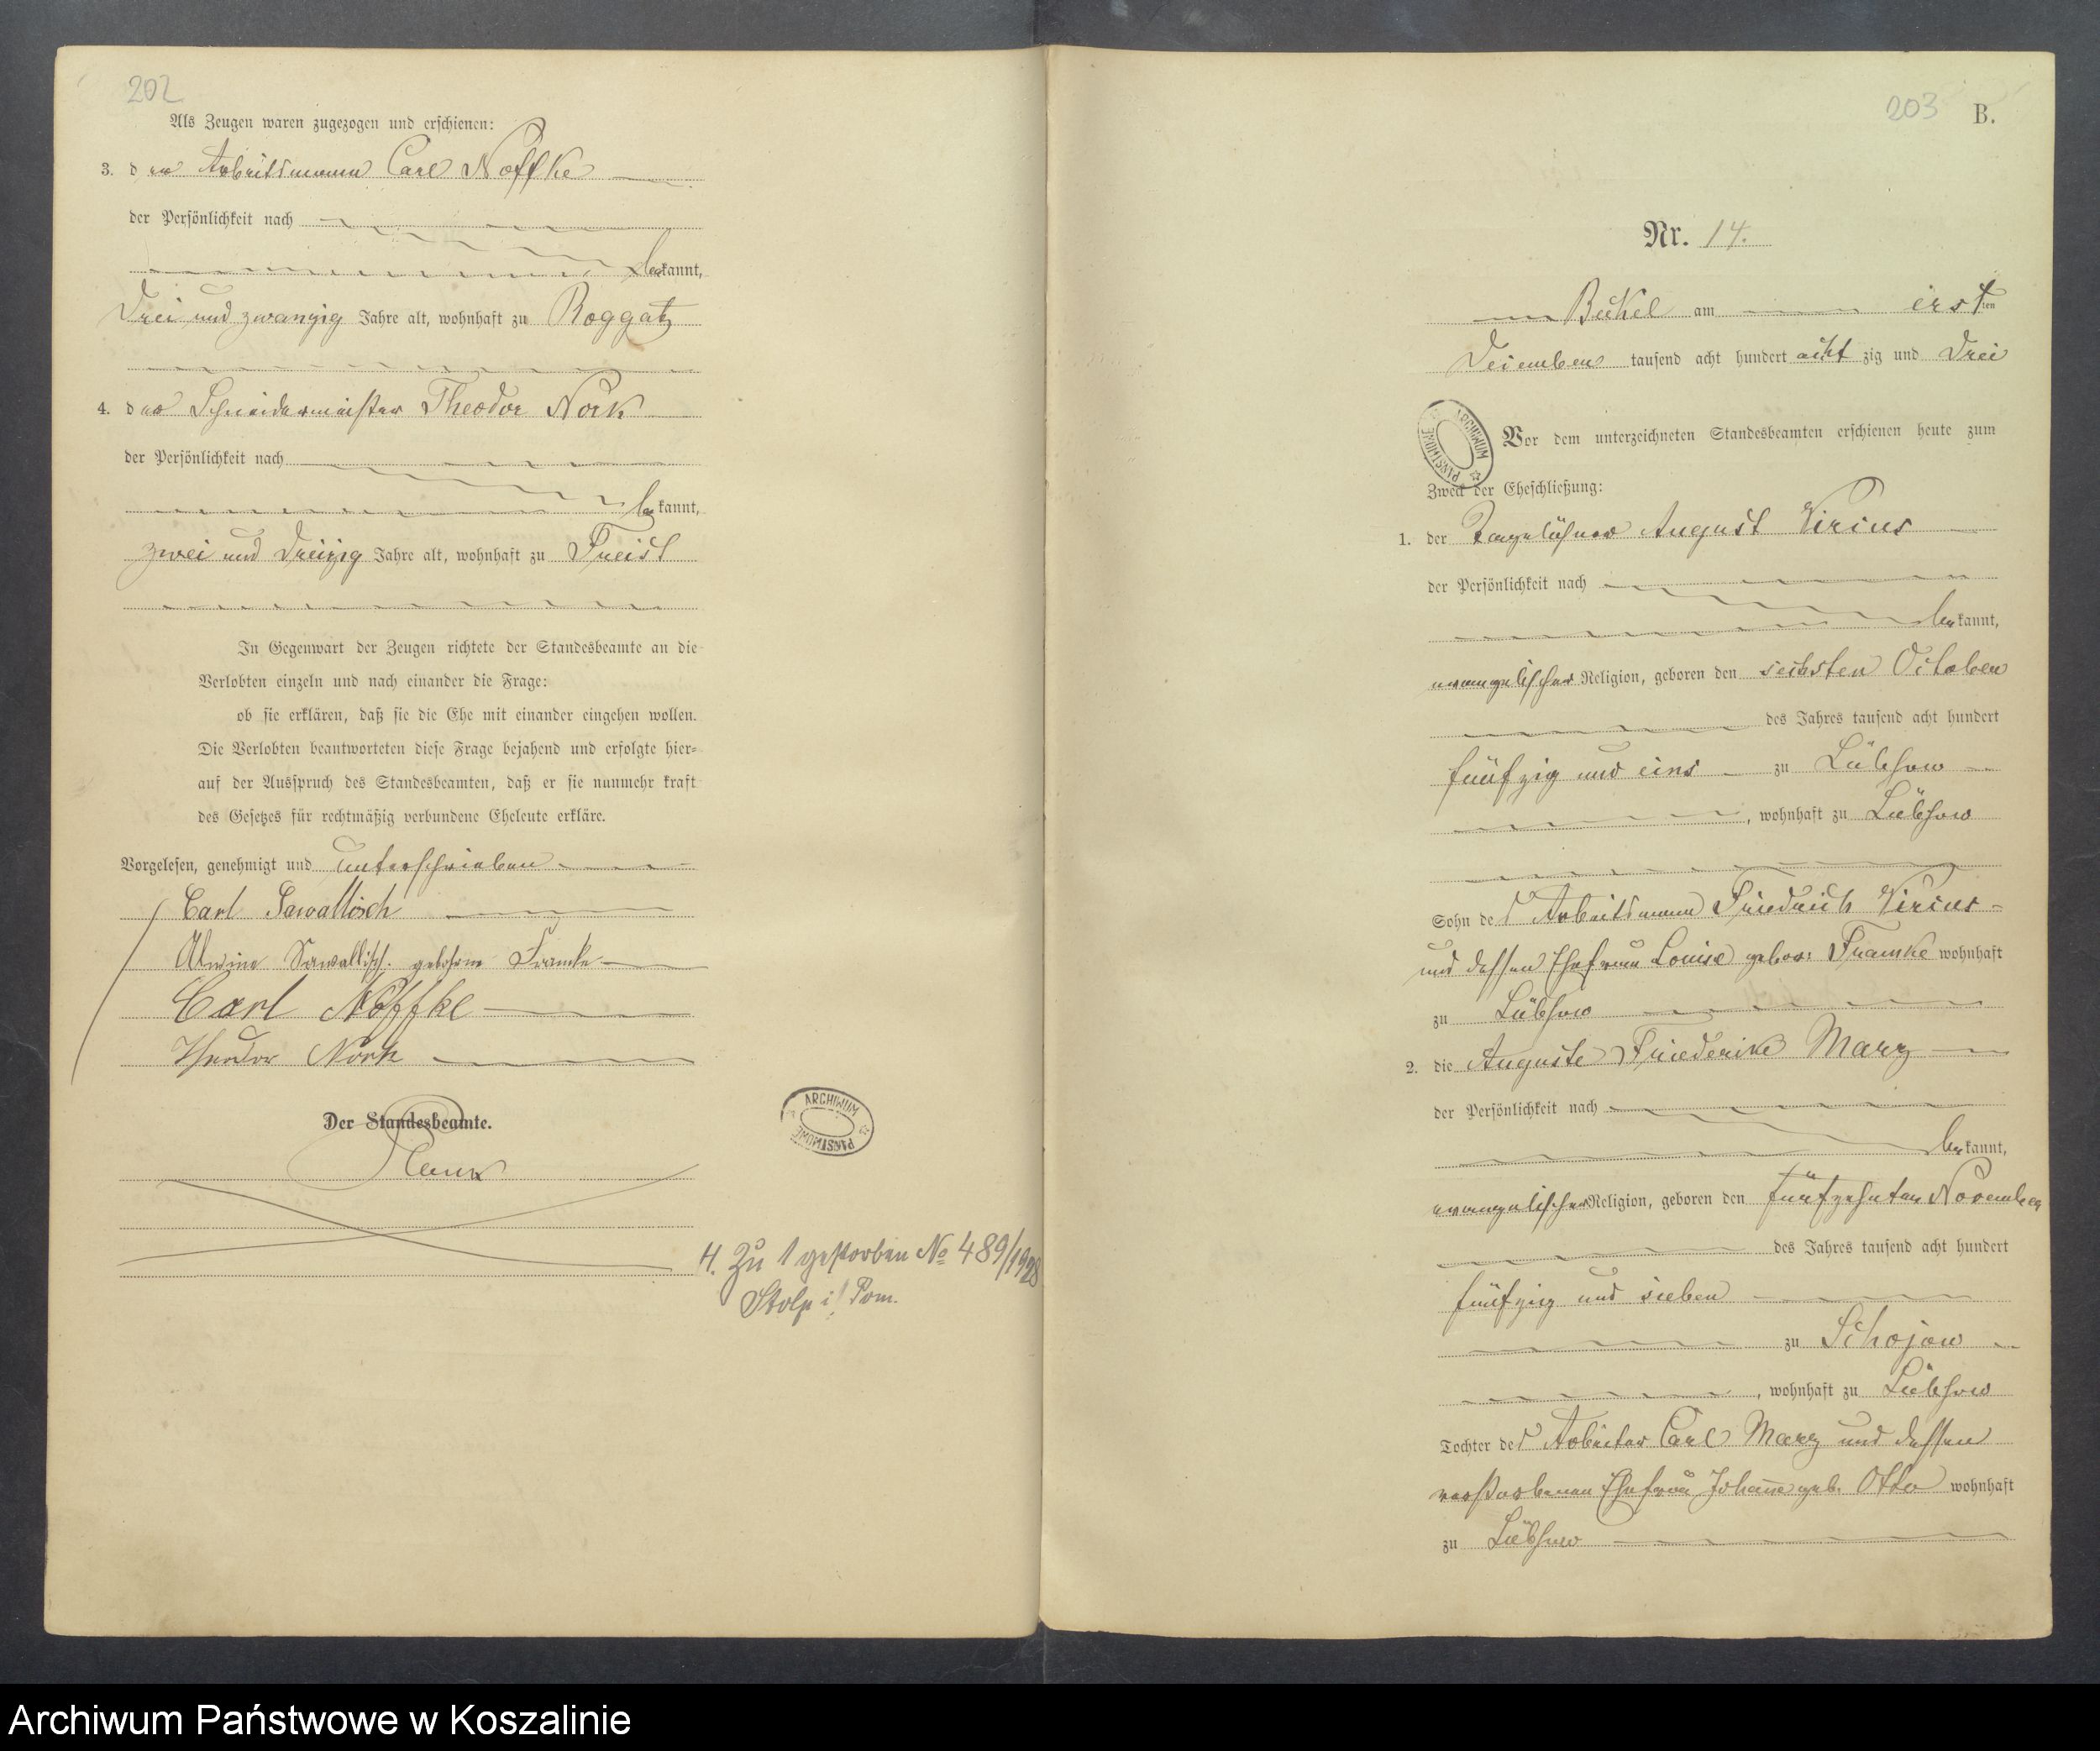 202
Als Zeugen waren zugezogen und erschienen:
3. der Arbeitsmann Carl Noffke
der Persönlichkeit nach
bekannt,
drei und zwanzig Jahre alt, wohnhaft zu Roggatz
4. der Schneidermeister Theodor Nork
der Persönlichkeit nach
bekannt,
zwei und dreizig Jahre alt, wohnhaft zu Freist
In Gegenwart der Zeugen richtete der Standesbeamte an die
Verlobten einzeln und nach einander die Frage:
ob sie erklären, daß sie die Ehe mit einander eingehen wollen.
Die Verlobten beantworteten diese Frage bejahend und erfolgte hier-
auf der Ausspruch des Standesbeamten, daß er sie nunmehr kraft
des Gesetzes für rechtmäßig verbundene Eheleute erkläre.
Vorgelesen, genehmigt und unterschrieben
Carl Sawallisch
Alwine Sawallisch geborne Framke
Carl Noffke
Theodor Nork
Der Standesbeamte.
ARCHIWUM PAŃSTWOWE
H. Zu 1 gestorben No 489/1928
Stolp i/ Pom.
203 B.
Nr. 14.
Beckel am ersten
December tausend acht hundert achtzig und drei
ARCHIWUM PAŃSTWOWE
Vor dem unterzeichneten Standesbeamten erschienen heute zum
Zweck der Eheschließung:
1. der Tagelöhner August Virius
der Persönlichkeit nach
bekannt,
evangelischer Religion, geboren den sechsten October
des Jahres tausend acht hundert
fünfzig und eins zu Lübsow
, wohnhaft zu Lübsow
Sohn des Arbeitsmann Friedrich Virius
und dessen Ehefrau Louise gebor: Framke wohnhaft
zu Lübsow
2. die Auguste Friederike Marz
der Persönlichkeit nach
bekannt,
evangelischer Religion, geboren den fünfzehnten November
des Jahres tausend acht hundert
fünfzig und sieben
zu Schojow
, wohnhaft zu Lübsow
Tochter des Arbeiter Carl Marz und dessen
verstorbenen Ehefrau Johanne geb. Otto wohnhaft
zu Lübsow
Archiwum Państwowe w Koszalinie